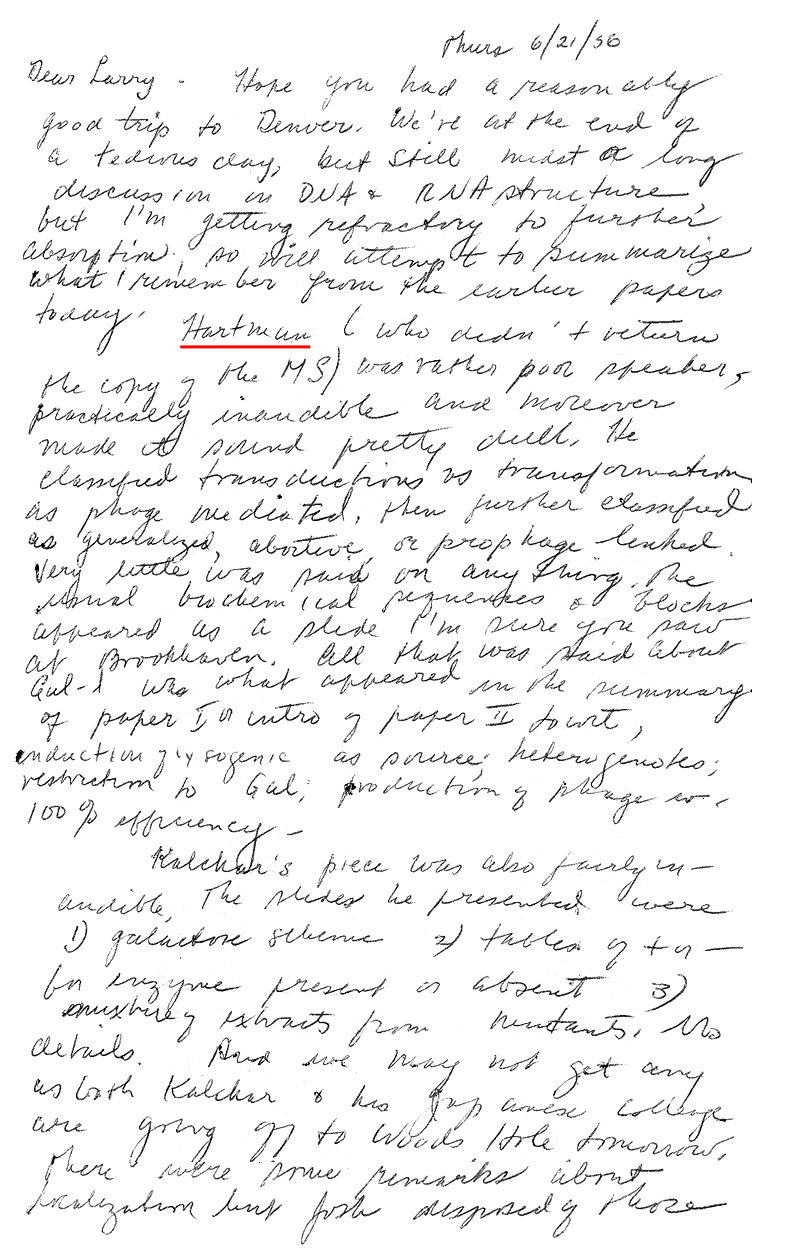 Thurs 6/21/56
Dear Larry - Hope you had a reasonably
good trip to Denver. We're at the end of
a tedious day, but still midst a long
discussion on DNA & RNA structure,
but I'm getting refractory to further
absorption, so will attempt to summarize
what I remember from the earlier papers
today.
Hartman (who didn't return
the copy of the MS) was rather poor speaker,
practically inaudible and moreover
made it sound pretty dull. He
classified transductions vs transformation
as phage mediated, then further classified
as generalized, abortive, or prophage linked.
Very little was said on anything. The
usual biochemical sequences & blocks
appeared as a slide I'm sure you saw
at Brookhaven. All that was said about
Gal-1 was what appeared in the summary
of paper I, or intro of paper II to wit,
induction of lysogenic as source; heterogenotes;
restriction to Gal; production of phage w.
100% efficiency -
Kalckar's piece was also fairly in-
audible. The slides he presented were
1) galactose scheme 2) tables of + or -
for enzyme present or absent 3)
mixture of extracts from mutants. No
details. And we may not get any
as both Kalckar & his Japanese colleage
are going off to Woods Hole tomorrow.
There were some remarks about
localization but Josh disposed of those